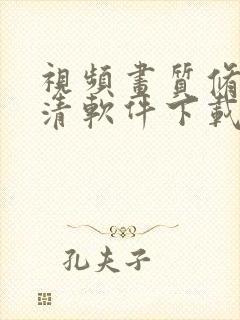 視頻畫質脩
清軟件下載
孔夫子